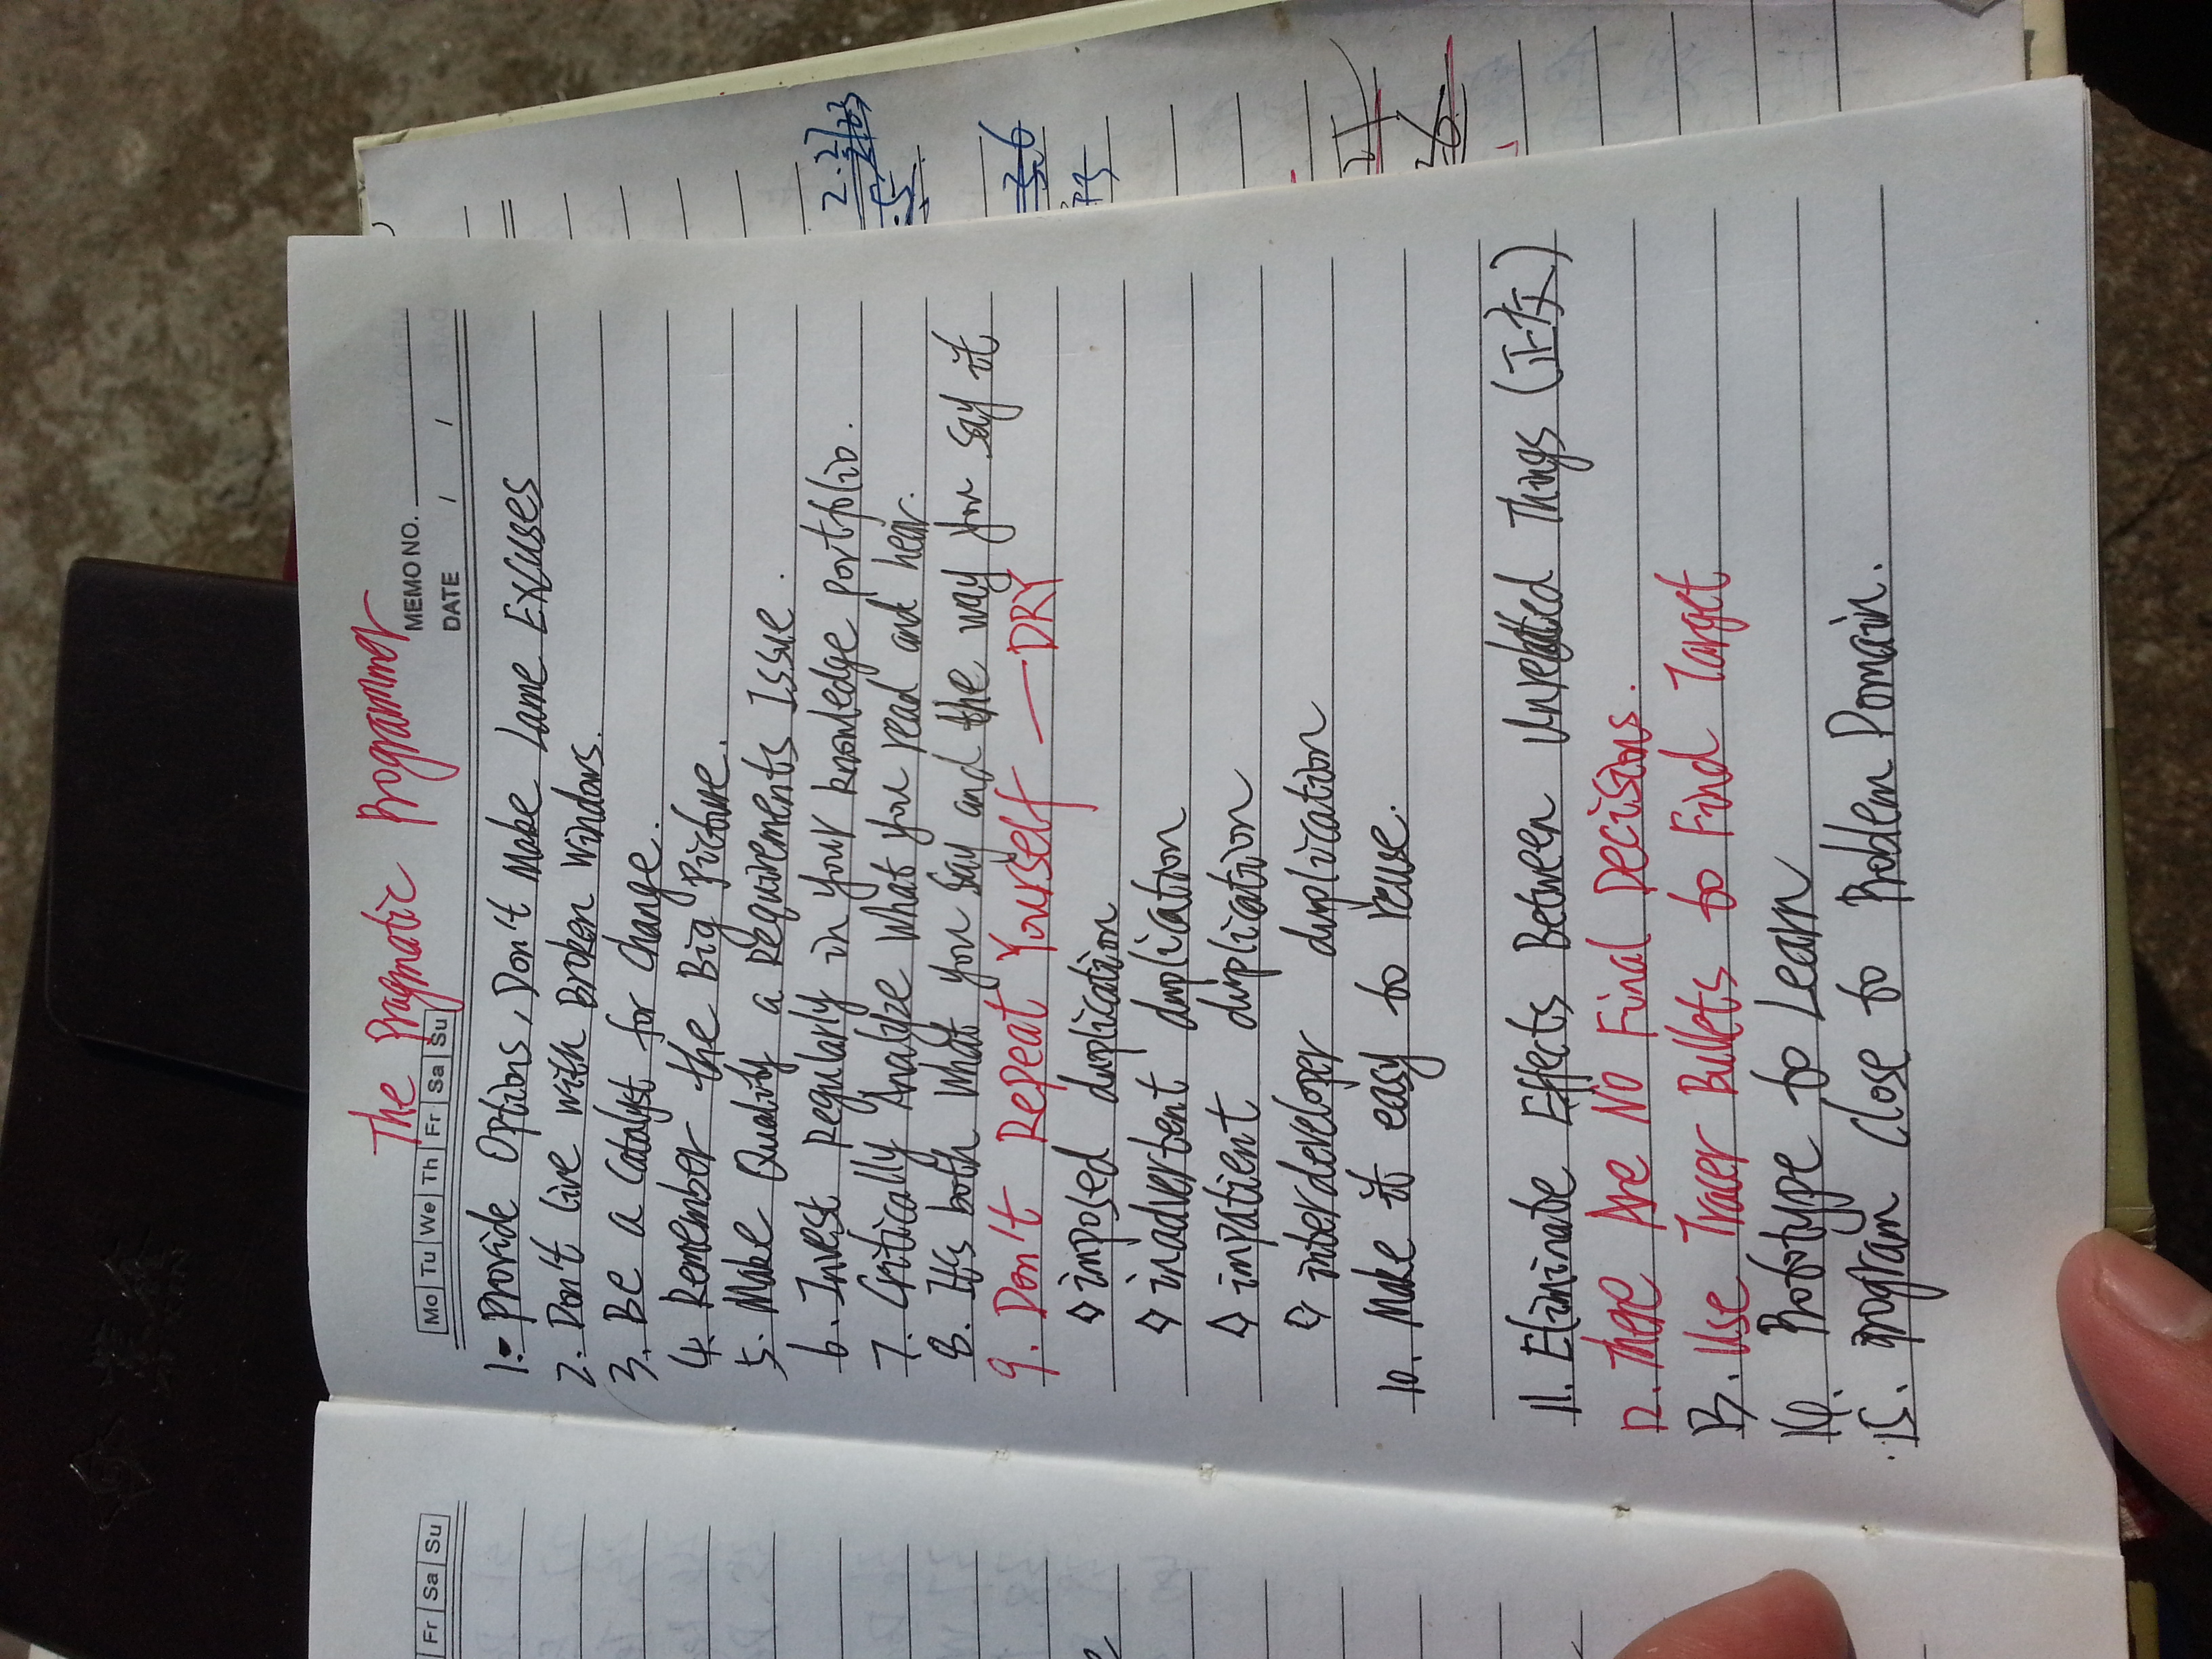 The Pragmatic Programmer
Fr Sa Su
Mo Tu We Th Fr Sa Su
MEMO NO.
DATE / /
1. Provide Options, Don't Make Lame Excuses
2. Don't live with Broken Windows.
3. Be a Catalyst for change.
4. Remember the Big Picture.
5. Make Quality a Requirements Issue.
6. Invest Regularly in your knowledge portfolio.
7. Critically Analyze what you read and hear.
8. It's both what you say and the way you say it
9. Don't Repeat Yourself — DRY
◇ imposed duplication
◇ inadvertent duplication
◇ impatient duplication
◇ interdeveloper duplication
10. Make it easy to reuse.
11. Eliminate Effects Between Unrelated Things (正交)
12. There Are No Final Decisions.
13. Use Tracer Bullets to Find Target
14. Prototype to Learn
15. program close to Problem Domain.